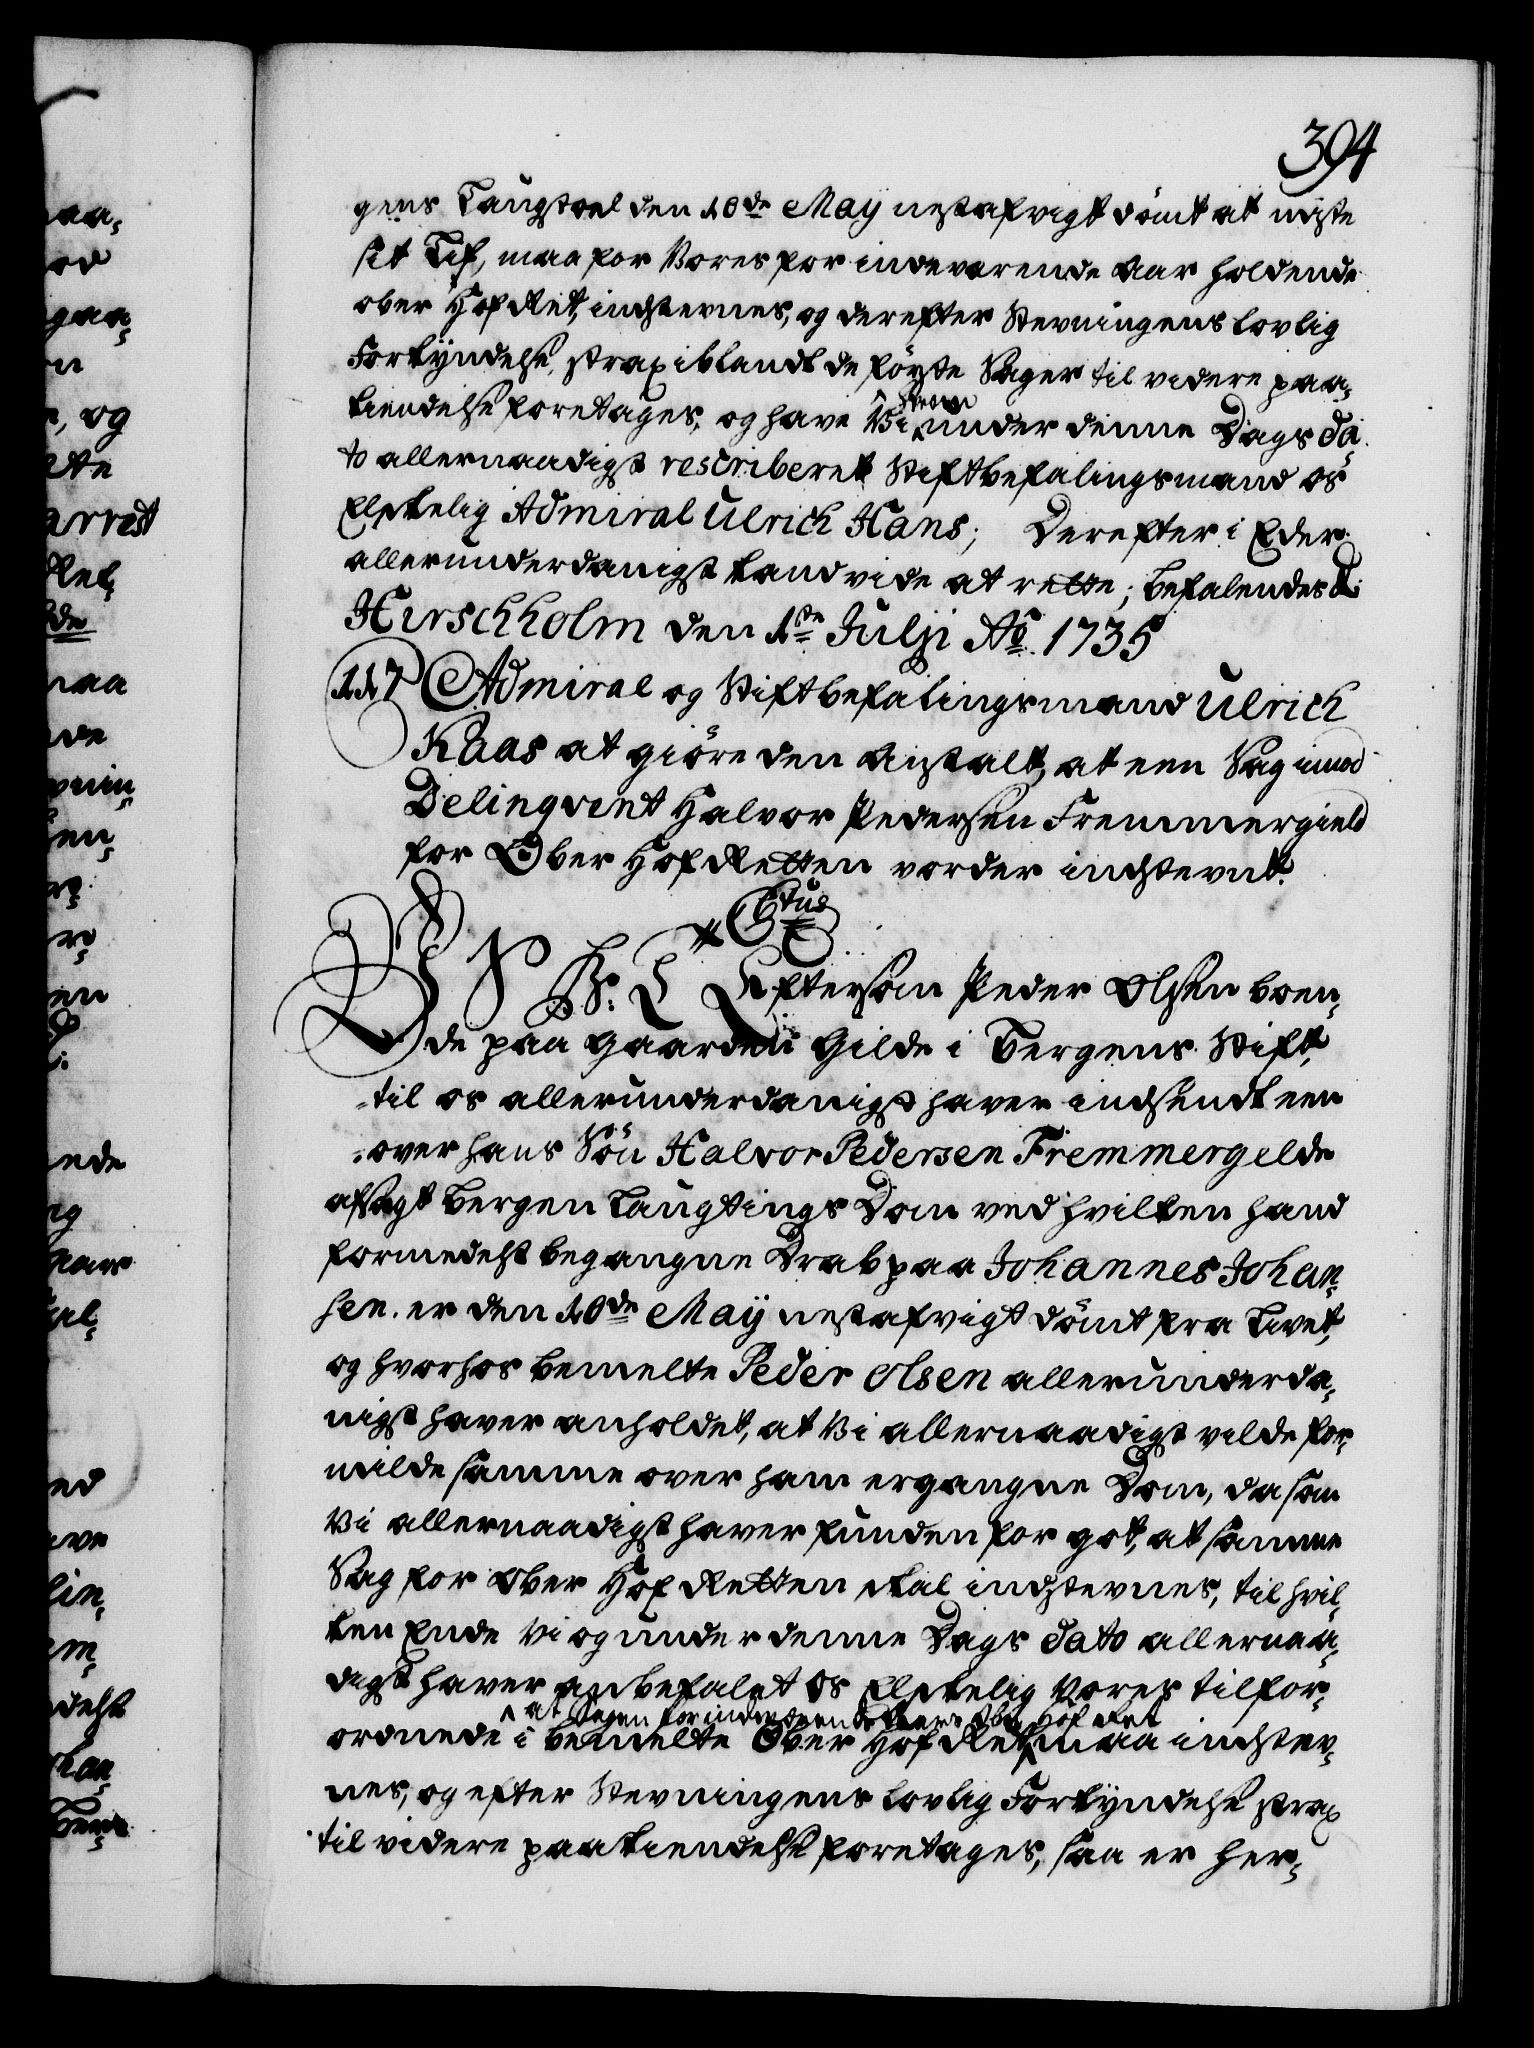 394
gens Laugstoel den 10de Maÿ nestafvigt dömt at miste
sit Lif, maa for Vores for indeværende Aar holdende
ober Hof Ret, indstevnes, og derefter Stevningens lovlig
Forkÿndelse, strax iblandt de föyste Sager til videre paa„
kiendelse foretages, og have Vi under denne Dags da„
to allernaadigst rescriberet Stiftbefalingsmand os
Elskelig Admiral Ulrich Kaas; Derefter i Eder
allerunderdanigst kand vide at rette; befalendes &
Hirschholm den 1ste Julji Ao 1735
117 Admiral og Stiftbefalingsmand Ulrich
Kaas at giöre den Anstalt, at een Sag imod
Delinqvent Halvor Pedersen Fremmergield
for Ober Hof Retten vorder indstevnt.
C 6tus
V S G: T Eftersom Peder Olsen boen„
de paa Gaarden Gilde i Bergens Stift,
til os allerunderdanigst haver indsendt een
over hans Sön Halvor Pedersen Fremmergelde
afsagt Bergen Laugtings Dom ved hvilken hand
formedelst begangne Drab paa Johannes Johan„
sen. er den 10de Maÿ nestafvigt dömt fra Livet,
og hvorhos bemelte Peder Olsen allerunderda„
nigst haver anholdet, at Vi allernaadigst vilde for„
milde samme over ham ergangne Dom, da som
Vi allernaadigst haver funden for got, at samme
Sag for Ober Hof Retten skal indstevnes, til hvil„
ken Ende Vi og under denne Dags dato allernaa„
digst haver anbefalet Os Elskelig Vores tilfor„
at Sagen for indeværende Aars Ober Hof Ret
ordnede i bemelte Ober Hof Ret, maa indstev„
nes, og efter Stevningens lovlig Forkÿndelse strax
til videre paakiendelse foretages, saa er her„